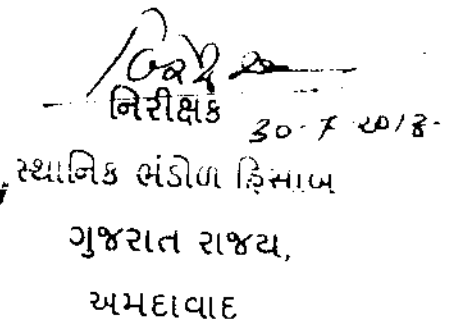 નિરીક્ષક
30-7-2018-
સ્થાનિક ભંડોળ હિસાબ
ગુજરાત રાજય,
અમદાવાદ